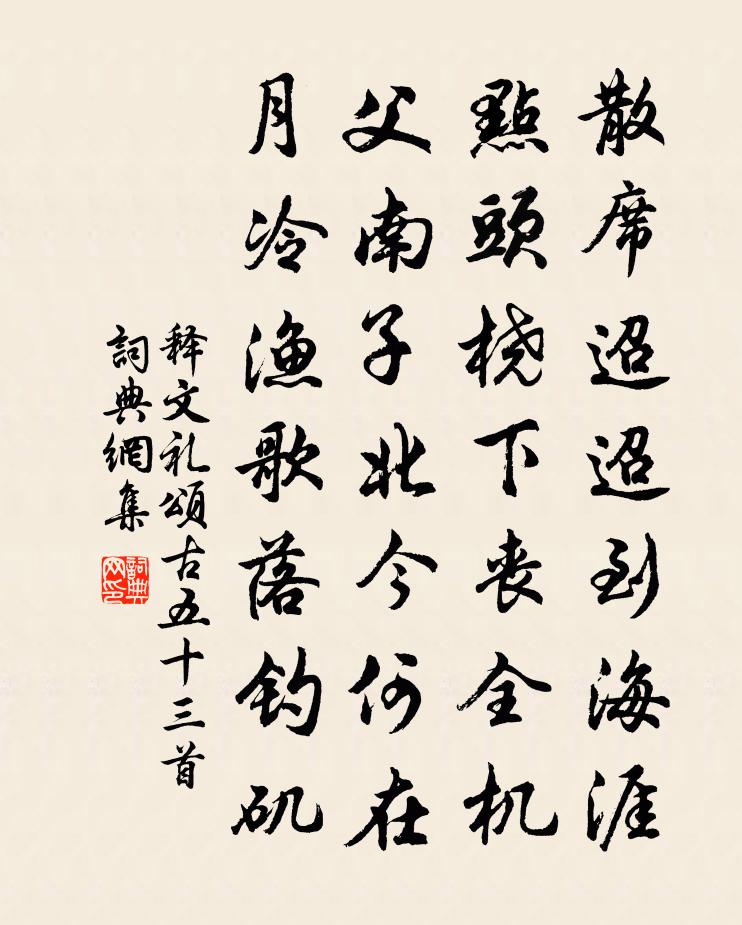 散席迢迢到海涯
點頭橈下丧全机
父南子北今何在
月冷渔歌落钓矶
释文礼頌古五十三首
詞典網集
詞典网印